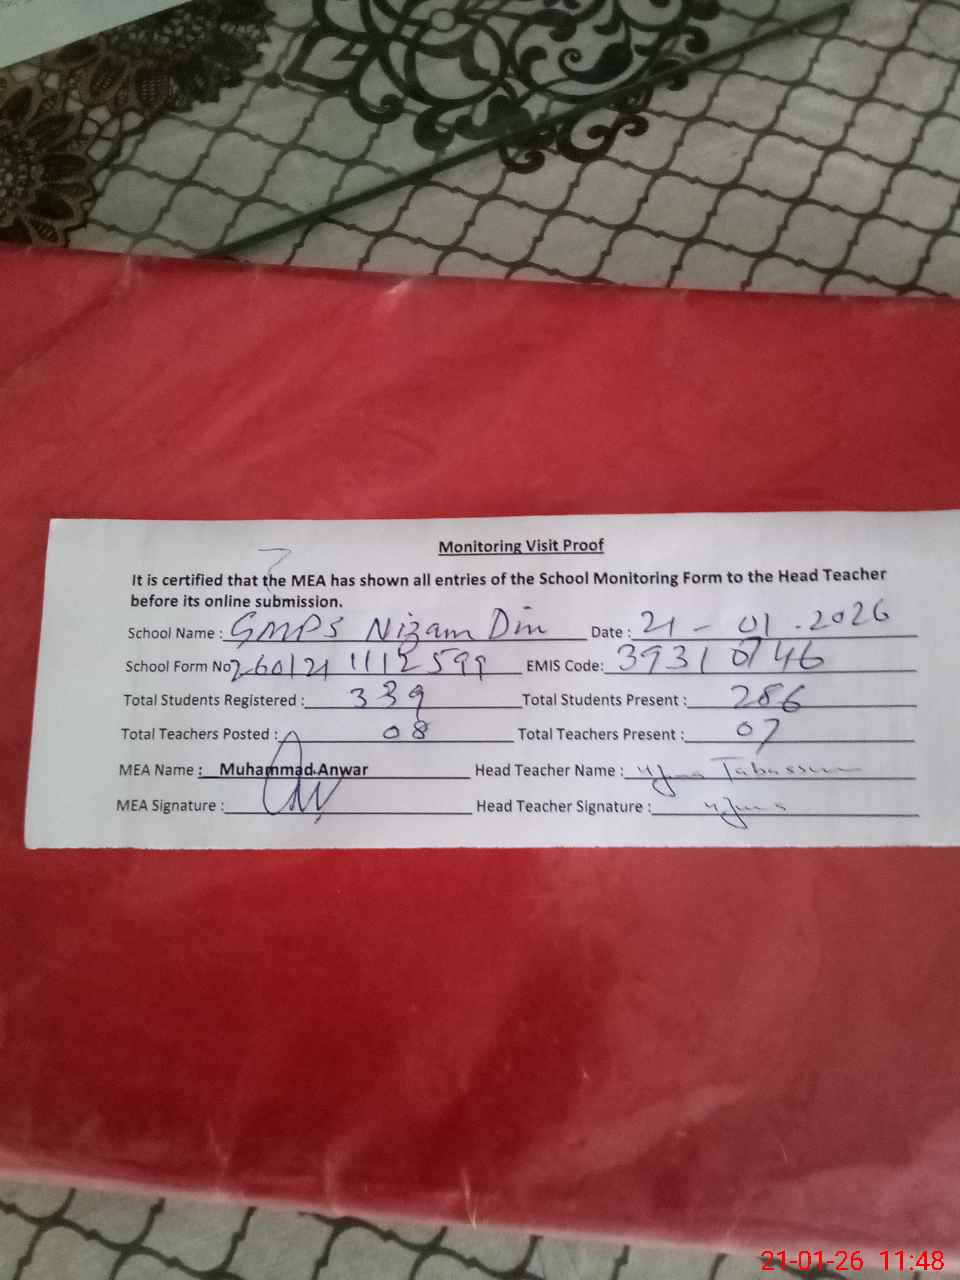 Monitoring Visit Proof
It is certified that the MEA has shown all entries of the School Monitoring Form to the Head Teacher
before its online submission.
School Name : GMPS Nizam Din Date : 21 - 01 - 2026
School Form No 260121 1112599 EMIS Code: 39310746
Total Students Registered : 339 Total Students Present : 286
Total Teachers Posted : 08 Total Teachers Present : 07
MEA Name : Muhammad Anwar Head Teacher Name : Tabassum
MEA Signature : Head Teacher Signature :
21-01-26 11:48